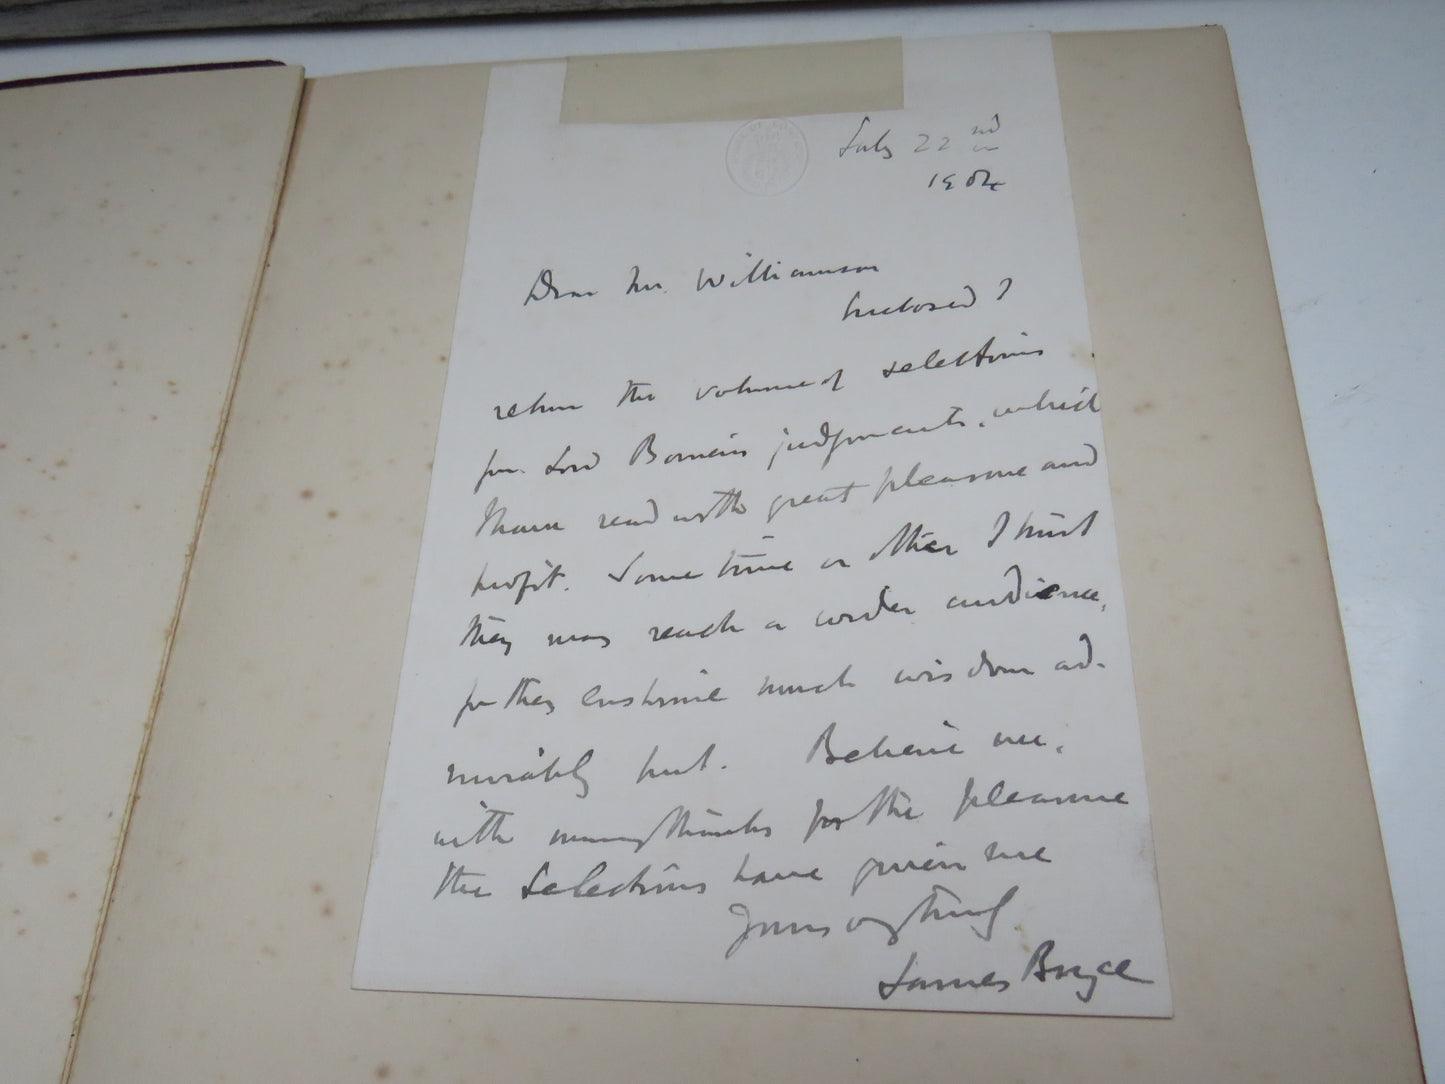 July 22nd
1904
Dear Mr. Williamson
Enclosed I
return the volume of selections
from Lord Bowen's judgments, which
I have read with great pleasure and
profit. Some time or other I trust
they may reach a wider audience,
for they enshrine much wisdom ad-
mirably put. Believe me,
with many thanks for the pleasure
the selections have given me
Yours very truly
James Bryce